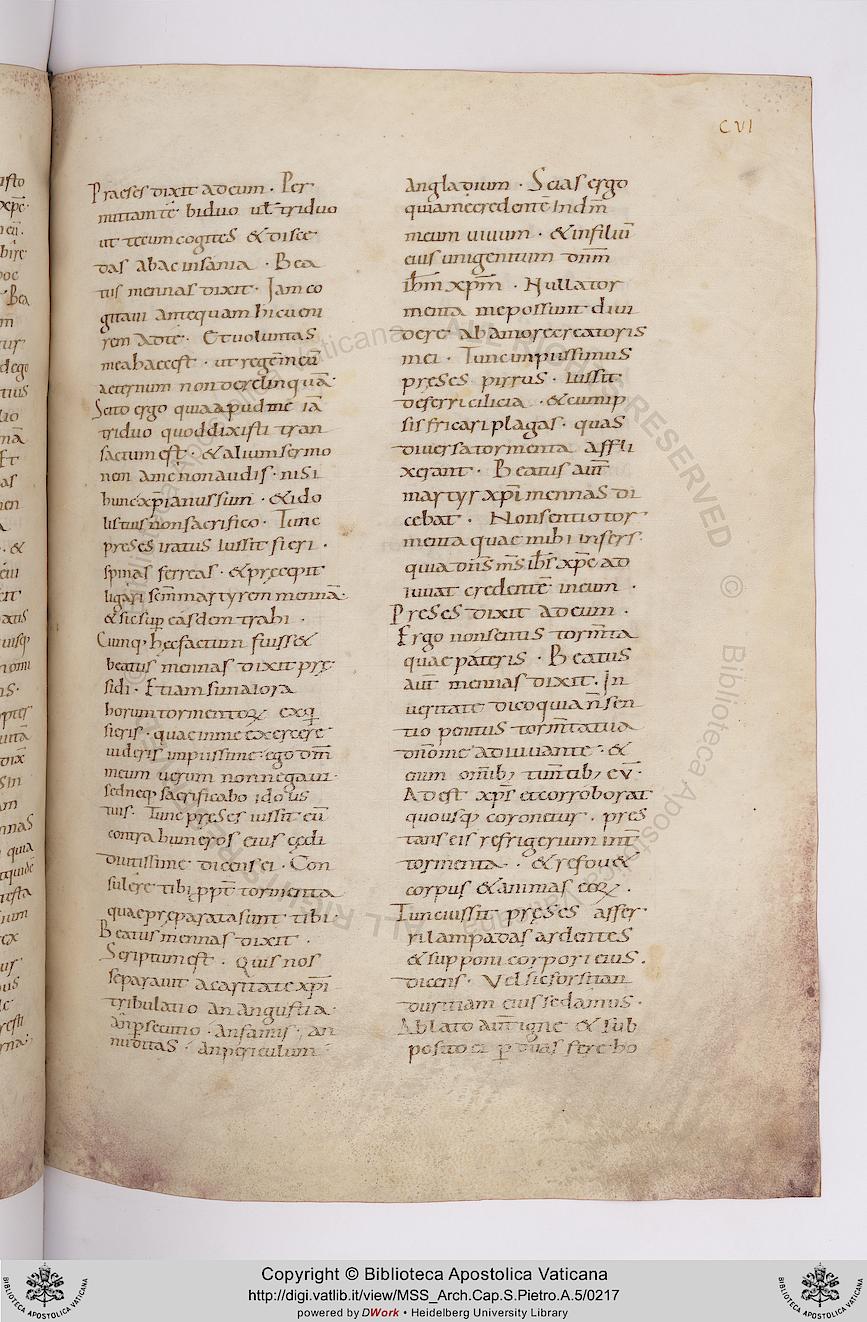 CVI
Praeses dixit adeum · Per
mittam te biduo ul̅ triduo
ut tecum cogites & disce
das abac insania · Bea
tus mennas dixit · Iam co
gitaui antequam hic ueni
rem adte · Et uoluntas
mea haecest · ut regē meū
aeternum non derelinquā·
Scito ergo quia apud me iā
triduo quod dixisti tran
sactum est · & alium sermo
nem ame non audis · nisi
hunc xp̅ianus sum · & ido
lis tuis non sacrifico · Tunc
preses iratus iussit fieri ·
spinas ferreas · & pręcepit
ligari sc̅m martyrem mennā·
& sic sup̱ eas den trahi ·
Cumq; hęc factum fuiss&
beatus mennas dixit prę·
sidi · Etiam si maiora
horum tormentoꝝ exq̇
sieris · quae in me exercere
uideris impiissime · ego dn̅m
meum uerum non negaui·
sed neq; sacrificabo idolis
tuis · Tunc preses iussit eū
contra humeros eius cędi
diutissime dicens ei · Con
sulere tibi ppt̅ tormenta
quae pręparata sunt tibi·
Beatus mennas dixit ·
Scriptum est · Quis nos
separauit acaritate xp̅i
tribulatio an angustia·
an p̱secutio · an famis · an
nuditas · an periculum·
an gladium · Scias ergo
quia me credentē In dn̅m
meum uiuum · & in filiū
eius unigenitum dn̅m
ih̅m xp̅m · Nulla tor
menta me possunt diui
dere ab amore creatoris
mei · Tunc impiissimus
preses pirrus · iussit
deferri cilicia · & cum ip
sis fricari plagas · quas
diuersa tormenta affli
xerant · Beatus aut̅
martyr xp̅i mennas di
cebat · Non sentio tor
menta quae mihi infers·
quia dn̅s ms̅ ih̅s xp̅c ad
iuuat credentē in eum ·
Preses dixit ad eum ·
Ergo non sentis torm̅ta
quae pateris · Beatus
aut̅ mennas dixit · In
ueritate dico quia n̅ sen
tio penitus torm̅ta tua
dn̅o me adiuuante · &
enim om̅ib; tim̅tib; eū·
Adest xp̅s et corroborat
quousq; coronetur · pres
tans eis refrigerium int̅
tormenta · & refou&
corpus & animas eoꝝ ·
Tunc iussit preses affer
ri lampadas ardentes
& supponi corpori eius ·
dicens · Vel sic forsitan
duritiam eius sedamus ·
Ablato aut̅ igne & sub
posito ei p̱ duas fere ho
Copyright © Biblioteca Apostolica Vaticana
http://digi.vatlib.it/view/MSS_Arch.Cap.S.Pietro.A.5/0217
powered by DWork • Heidelberg University Library